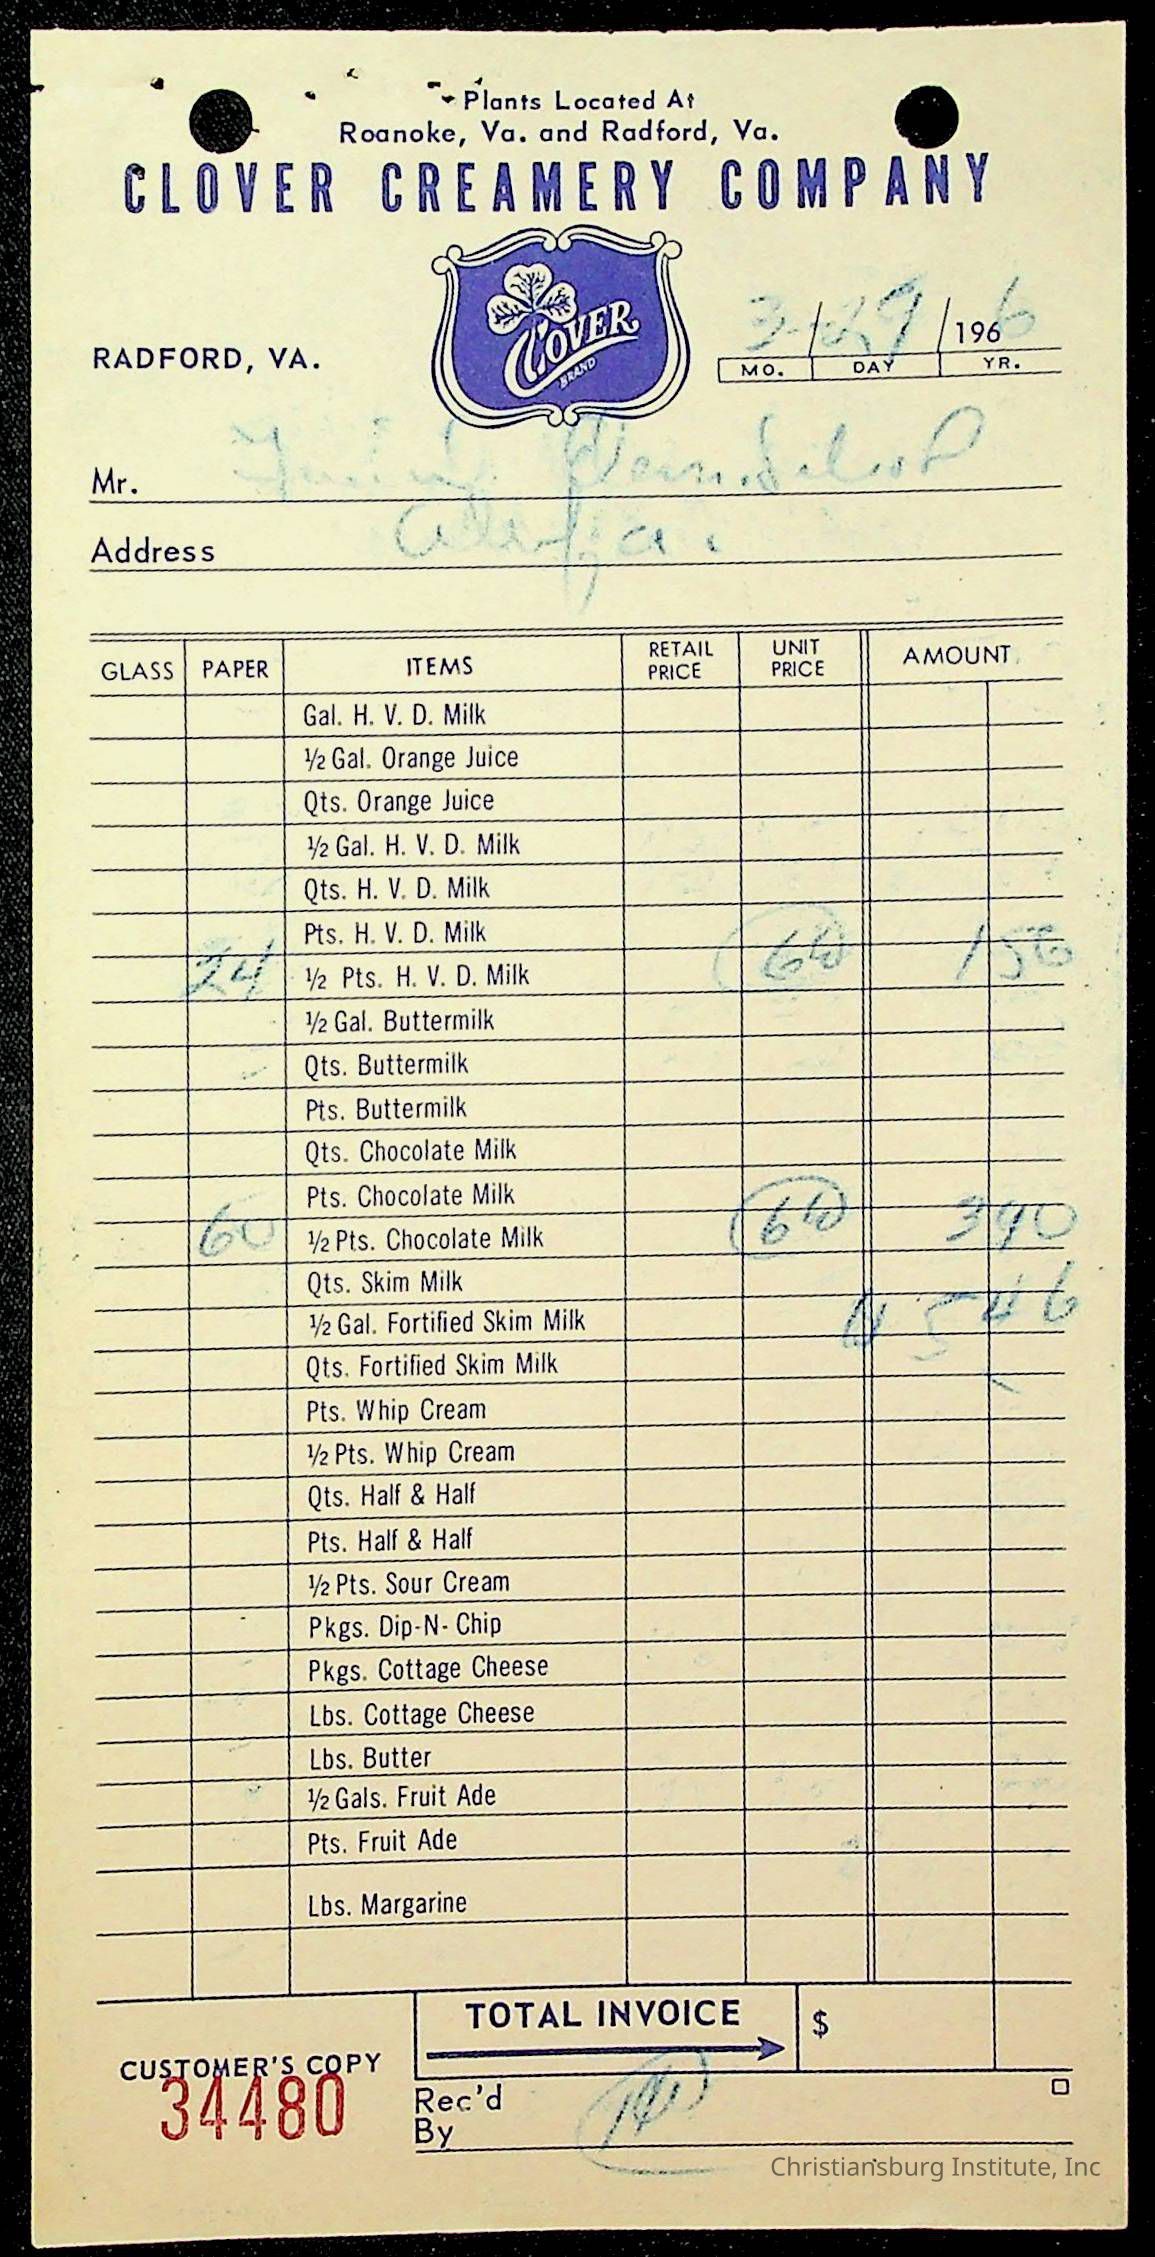 Plants Located At
Roanoke, Va. and Radford, Va.
CLOVER CREAMERY COMPANY
CLOVER
BRAND
RADFORD, VA.
3-/29/1966
MO. DAY YR.
Mr.
Address
GLASS PAPER ITEMS RETAIL PRICE UNIT PRICE AMOUNT
Gal. H. V. D. Milk
½ Gal. Orange Juice
Qts. Orange Juice
½ Gal. H. V. D. Milk
Qts. H. V. D. Milk
Pts. H. V. D. Milk
24 ½ Pts. H. V. D. Milk 156
½ Gal. Buttermilk
Qts. Buttermilk
Pts. Buttermilk
Qts. Chocolate Milk
Pts. Chocolate Milk
60 ½ Pts. Chocolate Milk 390
Qts. Skim Milk
½ Gal. Fortified Skim Milk 546
Qts. Fortified Skim Milk
Pts. Whip Cream
½ Pts. Whip Cream
Qts. Half & Half
Pts. Half & Half
½ Pts. Sour Cream
Pkgs. Dip-N-Chip
Pkgs. Cottage Cheese
Lbs. Cottage Cheese
Lbs. Butter
½ Gals. Fruit Ade
Pts. Fruit Ade
Lbs. Margarine
TOTAL INVOICE $
CUSTOMER'S COPY
34480
Rec'd
By
Christiansburg Institute, Inc